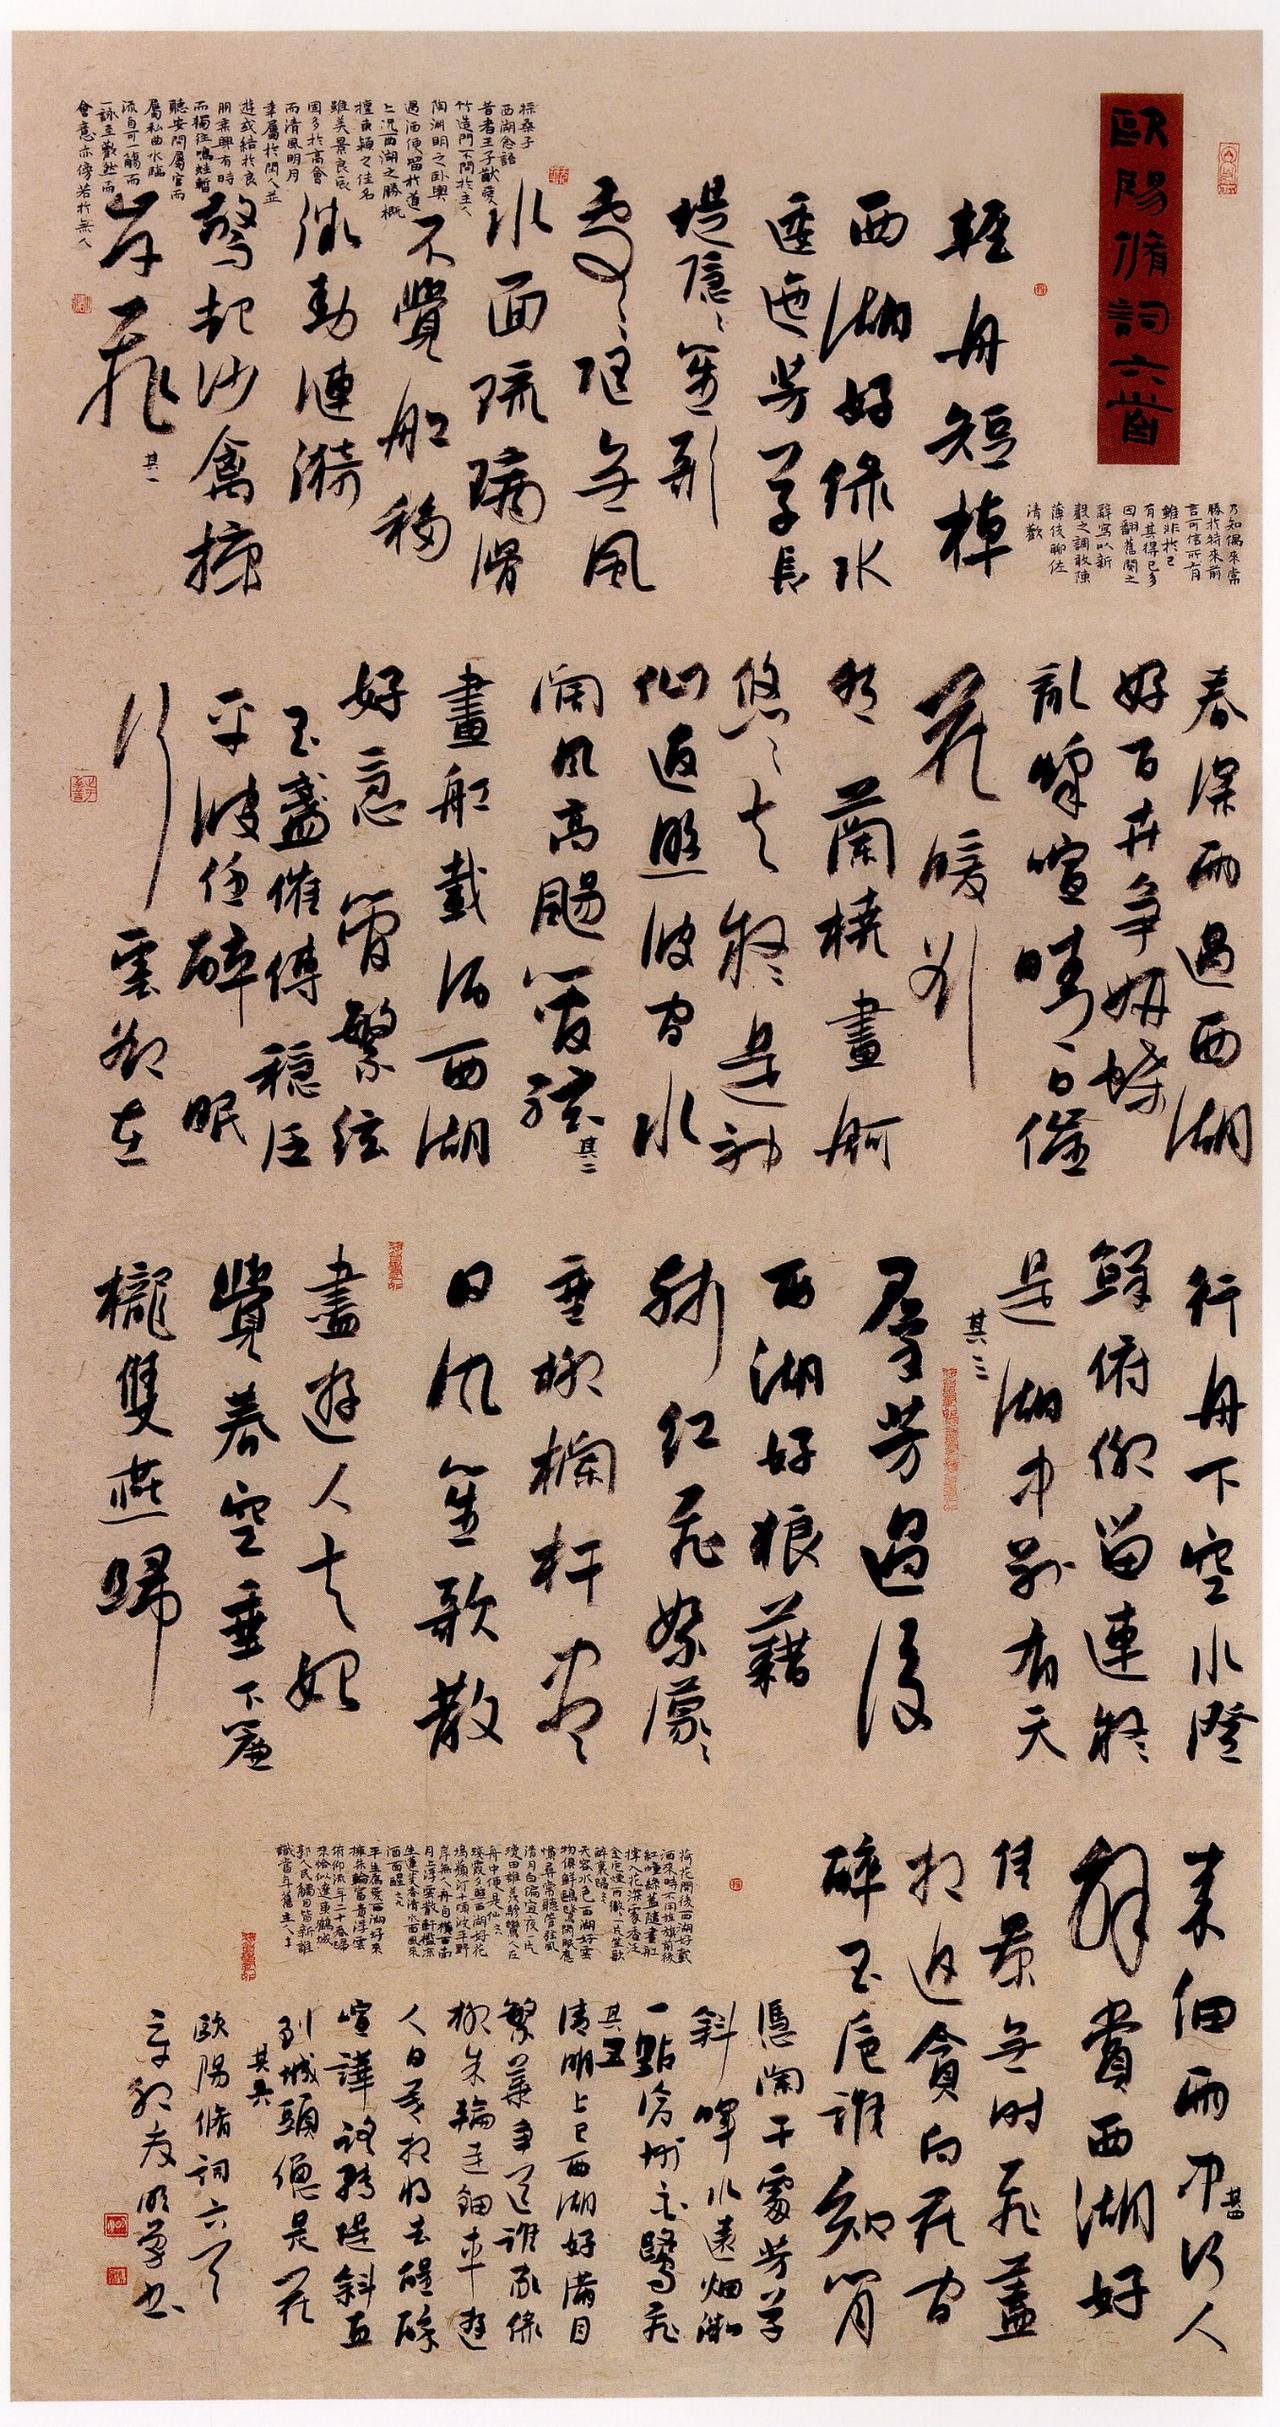 歐陽脩詞六首
乃知偶來常
勝於特來前
言可信所有
雖非於己
有其得已多
因翻舊闋之
辭寫以新
聲之調敢陳
薄伎聊佐
清歡
輕舟短棹
西湖好綠水
逶迤芳草長
堤隱〻笙歌
處〻隨無風
水面琉璃滑
不覺船移
微動漣漪
驚起沙禽掠
岸飛 其一
採桑子
西湖念語
昔者王子猷愛
竹造門不問於主人
陶淵明之臥輿
遇酒便留於道
上況西湖之勝概
擅東潁之佳名
雖美景良辰
固多於高會
而清風明月
幸屬於閑人並
遊或結於良
朋乘興有時
而獨往鳴蛙暫
聽安問屬官而
屬私曲水臨
流自可一觴而
一詠至歡然而
會意亦傍若於無人
春深雨過西湖
好百卉爭妍蝶
亂蜂喧晴日催
花暖欲
然蘭橈畫舸
悠〻去疑是神
仙返照波間水
闊風高颺管絃 其二
畫船載酒西湖
好急管繁絃
玉盞催傳穩泛
平波任醉眠
行雲卻在
行舟下空水澄
鮮俯仰留連疑
是湖中別有天
其三
群芳過後
西湖好狼藉
殘紅飛絮濛〻
垂柳欄杆盡
日風笙歌散
盡遊人去始
覺春空垂下簾
櫳雙燕歸
來細雨中 其四 何人
解賞西湖好
佳景無時飛蓋
相追貪向花間
醉玉卮誰知閑
憑闌干處芳草
斜暉水遠煙微
一點滄洲白鷺飛
其五
清明上巳西湖好滿目
繁華爭道誰家綠
柳朱輪走鈿車遊
人日暮相將去醒醉
喧譁路轉堤斜直
到城頭總是花
其六
荷花開後西湖好載
酒來時不用旌旗前後
紅幢綠蓋隨畫船
撐入花深處香泛
金卮煙雨微〻一片笙歌
醉裏歸〻
天容水色西湖好雲
物俱鮮鷗鷺閑眠應
慣尋常聽管絃風
清月白偏宜夜一片
瓊田誰羨驂鸞人在
舟中便是仙〻
殘霞夕照西湖好花
塢蘋汀十頃波平野
岸無人舟自橫西南
月上浮雲散軒檻涼
生蓮芰香清水面風來
酒面醒〻
平生為愛西湖好來
擁朱輪富貴浮雲
俯仰流年二十春歸
來恰似遼東鶴城
郭人民觸目皆新誰
識當年舊主人〻
歐陽脩詞六首